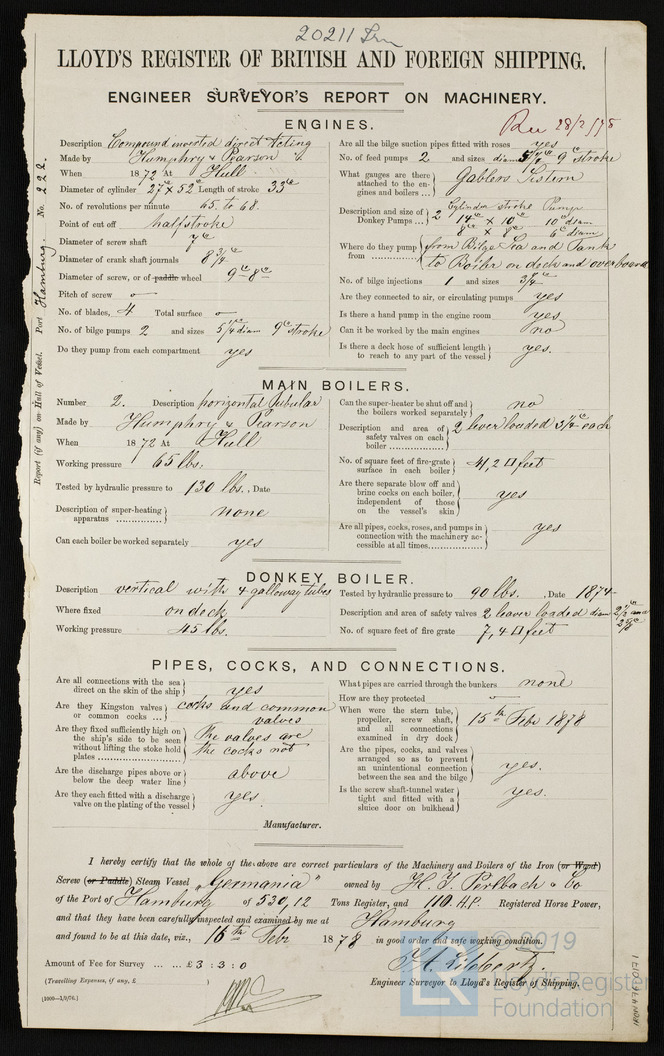 20211 Irn
LLOYD'S REGISTER OF BRITISH AND FOREIGN SHIPPING.
ENGINEER SURVEYOR'S REPORT ON MACHINERY.
Rec 28/2/78
Report (if any) on Hull of Vessel. Port Hamburg. No. 222.
ENGINES.
Description Compound inverted direct Acting
Made by Humphry & Pearson
When 1872 At Hull
Diameter of cylinder 27" × 52" Length of stroke 33"
No. of revolutions per minute 65. to 68.
Point of cut off halfstroke
Diameter of screw shaft
Diameter of crank shaft journals 8 3/4"
Diameter of screw, or of paddle wheel
Pitch of screw –
No. of blades, 4 Total surface –
No. of bilge pumps 2 and sizes 5 1/4" diam 9" stroke
Do they pump from each compartment yes
Are all the bilge suction pipes fitted with roses yes
No. of feed pumps 2 and sizes diam 9" stroke
What gauges are there attached to the engines and boilers ... Gablers Sistem
Description and size of Donkey Pumps ... 2 Cylinder stroke Pump
14" × 10" 10" diam
8" × 8" 6" diam
Where do they pump from ............ from Bilge Sea and Tank
to Boiler on deck and overboard
No. of bilge injections 1 and sizes
Are they connected to air, or circulating pumps yes
Is there a hand pump in the engine room yes
Can it be worked by the main engines no
Is there a deck hose of sufficient length to reach to any part of the vessel yes.
MAIN BOILERS.
Number 2. Description horizontal tubular
Made by Humphry & Pearson
When 1872 At Hull
Working pressure 65 lbs.
Tested by hydraulic pressure to 130 lbs. . Date
Description of super-heating apparatus .............. none
Can each boiler be worked separately yes
Can the super-heater be shut off and the boilers worked separately no
Description and area of safety valves on each boiler ............... 2 lever loaded each
No. of square feet of fire-grate surface in each boiler 41,2 □ feet
Are there separate blow off and brine cocks on each boiler, independent of those on the vessel's skin yes
Are all pipes, cocks, roses, and pumps in connection with the machinery accessible at all times............... yes
DONKEY BOILER.
Description vertical with 4 galloway tubes
Where fixed on deck
Working pressure 45 lbs.
Tested by hydraulic pressure to 90 lbs. . Date 1874
Description and area of safety valves 2 leaver loaded diam
No. of square feet of fire grate 7,4 □ feet
PIPES, COCKS, AND CONNECTIONS.
Are all connections with the sea direct on the skin of the ship yes
Are they Kingston valves or common cocks ... cocks and common valves
Are they fixed sufficiently high on the ship's side to be seen without lifting the stoke hold plates .................. The valves are the cocks not
Are the discharge pipes above or below the deep water line above
Are they each fitted with a discharge valve on the plating of the vessel yes.
What pipes are carried through the bunkers none
How are they protected –
When were the stern tube, propeller, screw shaft, and all connections examined in dry dock 15th Febr 1878
Are the pipes, cocks, and valves arranged so as to prevent an unintentional connection between the sea and the bilge yes.
Is the screw shaft-tunnel water tight and fitted with a sluice door on bulkhead yes.
Manufacturer.
I hereby certify that the whole of the above are correct particulars of the Machinery and Boilers of the Iron (or Wood)
Screw (or Paddle) Steam Vessel „Germania" owned by H. J. Perlbach & Co
of the Port of Hamburg of 530,12 Tons Register, and 110 H.P. Registered Horse Power,
and that they have been carefully inspected and examined by me at Hamburg
and found to be at this date, viz., 16th Febr 1878 in good order and safe working condition.
Amount of Fee for Survey ... ... £3 : 3 : 0
(Travelling Expenses, if any, £ )
Engineer Surveyor to Lloyd's Register of Shipping.
© 2019
Lloyd's Register
Foundation
LR